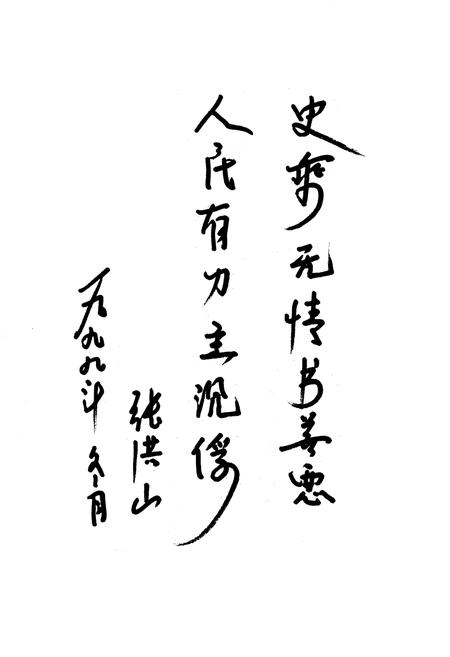 史笔无情书善恶
人民有力主沉浮
张洪山
一九九九年六月